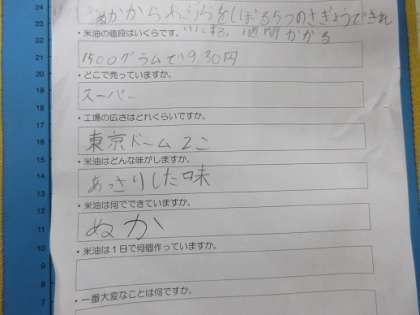 ぬかからあぶらをしぼる5つのさぎょうできれ
いにする。1週間かかる
・米油の値段はいくらです。
1500グラムで930円
・どこで売っていますか。
スーパー
・工場の広さはどれくらいですか。
東京ドーム2こ
・米油はどんな味がしますか。
あっさりした味
・米油は何でできていますか。
ぬか
・米油は1日で何個作っていますか。
・一番大変なことは何ですか。
24
22
21
20
19
18
17
16
15
14
13
12
11
10
9
8
7